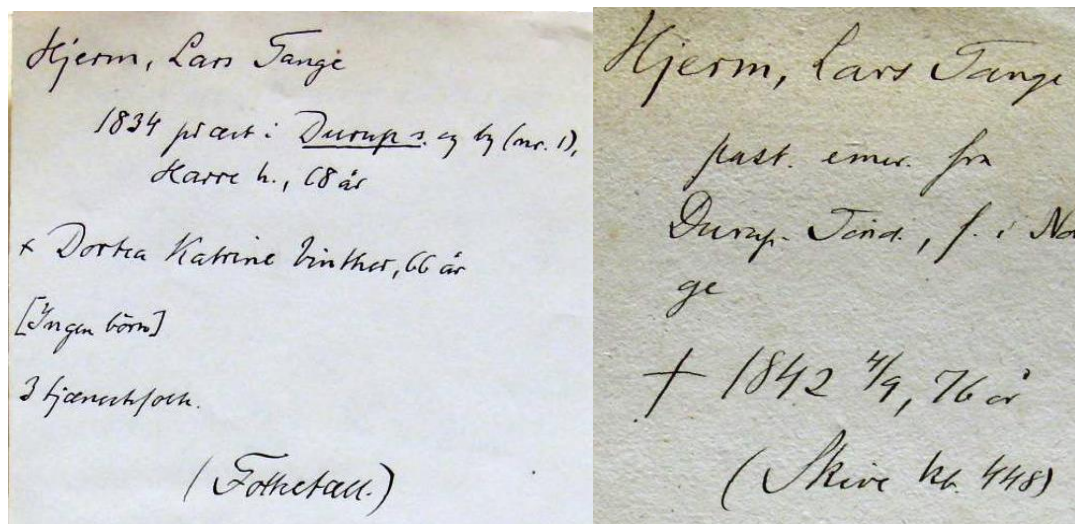 Hjerm, Lars Tange
1834 præst i Durup s. og by (nr. 1),
Harre h., 68 år
× Dortea Katrine Vinther, 66 år
[Ingen börn]
3 tjenestfolk.
(Folketæll.)
Hjerm, Lars Tange
past. emer. fra
Durup-Tond., f. i No
ge
† 1842 4/9, 76 år
(Skive kb. 448)